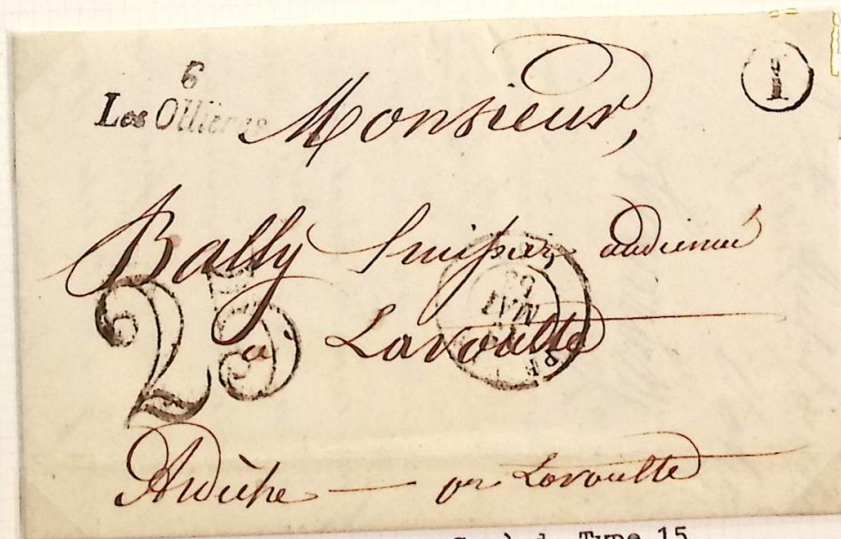 6
Les Ollières
1
Monsieur,
Bally huissier audiencié
25
à Lavoulte
MAI
Ardèche — Lavoulte
Type 15